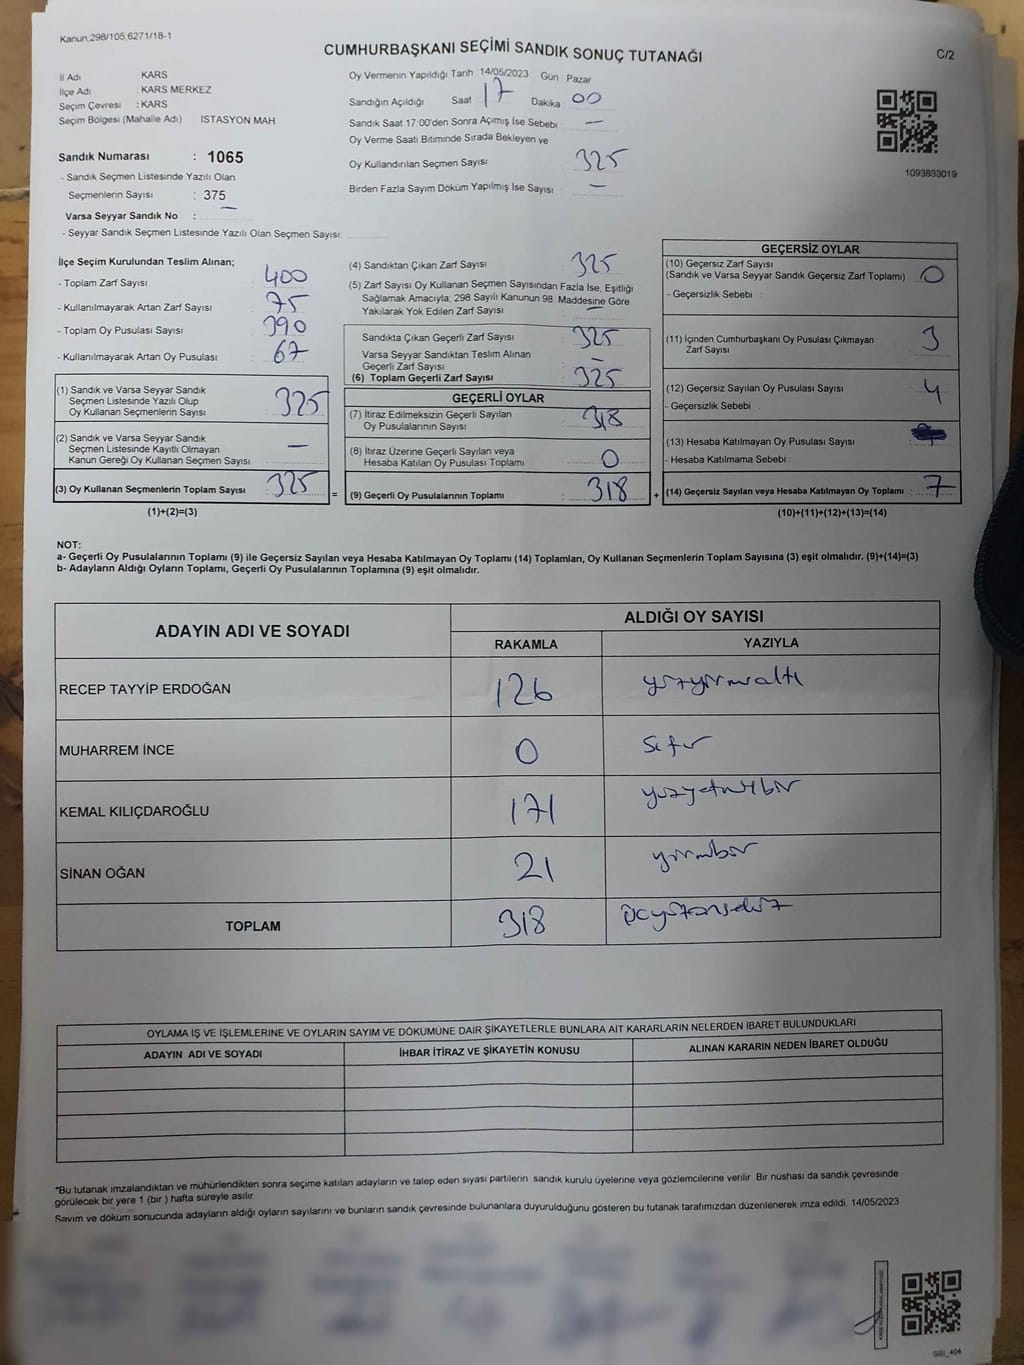 Kanun,298/105,6271/18-1
CUMHURBAŞKANI SEÇİMİ SANDIK SONUÇ TUTANAĞI
C/2
İl Adı KARS
İlçe Adı KARS MERKEZ
Seçim Çevresi : KARS
Seçim Bölgesi (Mahalle Adı) İSTASYON MAH
Sandık Numarası : 1065
- Sandık Seçmen Listesinde Yazılı Olan
Seçmenlerin Sayısı : 375
Varsa Seyyar Sandık No : —
- Seyyar Sandık Seçmen Listesinde Yazılı Olan Seçmen Sayısı:
Oy Vermenin Yapıldığı Tarih 14/05/2023 Gün Pazar
Sandığın Açıldığı Saat 17 Dakika 00
Sandık Saat 17:00'den Sonra Açımış İse Sebebi : —
Oy Verme Saati Bitiminde Sırada Bekleyen ve
Oy Kullandırılan Seçmen Sayısı : 325
Birden Fazla Sayım Döküm Yapılmış İse Sayısı : —
1093833019
İlçe Seçim Kurulundan Teslim Alınan;
- Toplam Zarf Sayısı : 400
- Kullanılmayarak Artan Zarf Sayısı : 75
- Toplam Oy Pusulası Sayısı : 390
- Kullanılmayarak Artan Oy Pusulası : 67
(1) Sandık ve Varsa Seyyar Sandık
Seçmen Listesinde Yazılı Olup
Oy Kullanan Seçmenlerin Sayısı : 325
(2) Sandık ve Varsa Seyyar Sandık
Seçmen Listesinde Kayıtlı Olmayan
Kanun Gereği Oy Kullanan Seçmen Sayısı : —
(3) Oy Kullanan Seçmenlerin Toplam Sayısı : 325
(1)+(2)=(3)
=
(4) Sandıktan Çıkan Zarf Sayısı : 325
(5) Zarf Sayısı Oy Kullanan Seçmen Sayısından Fazla İse, Eşitliği
Sağlamak Amacıyla, 298 Sayılı Kanunun 98. Maddesine Göre
Yakılarak Yok Edilen Zarf Sayısı : —
Sandıkta Çıkan Geçerli Zarf Sayısı : 325
Varsa Seyyar Sandıktan Teslim Alınan
Geçerli Zarf Sayısı : —
(6) Toplam Geçerli Zarf Sayısı : 325
GEÇERLİ OYLAR
(7) İtiraz Edilmeksizin Geçerli Sayılan
Oy Pusulalarının Sayısı : 318
(8) İtiraz Üzerine Geçerli Sayılan veya
Hesaba Katılan Oy Pusulası Toplamı : 0
(9) Geçerli Oy Pusulalarının Toplamı : 318
+
GEÇERSİZ OYLAR
(10) Geçersiz Zarf Sayısı
(Sandık ve Varsa Seyyar Sandık Geçersiz Zarf Toplamı) : 0
- Geçersizlik Sebebi :
(11) İçinden Cumhurbaşkanı Oy Pusulası Çıkmayan
Zarf Sayısı : 3
(12) Geçersiz Sayılan Oy Pusulası Sayısı : 4
- Geçersizlik Sebebi :
(13) Hesaba Katılmayan Oy Pusulası Sayısı :
- Hesaba Katılmama Sebebi :
(14) Geçersiz Sayılan veya Hesaba Katılmayan Oy Toplamı : 7
(10)+(11)+(12)+(13)=(14)
NOT:
a- Geçerli Oy Pusulalarının Toplamı (9) ile Geçersiz Sayılan veya Hesaba Katılmayan Oy Toplamı (14) Toplamları, Oy Kullanan Seçmenlerin Toplam Sayısına (3) eşit olmalıdır. (9)+(14)=(3)
b- Adayların Aldığı Oyların Toplamı, Geçerli Oy Pusulalarının Toplamına (9) eşit olmalıdır.
ADAYIN ADI VE SOYADI
ALDIĞI OY SAYISI
RAKAMLA YAZIYLA
RECEP TAYYİP ERDOĞAN 126 yüzyirmialtı
MUHARREM İNCE 0 Sıfır
KEMAL KILIÇDAROĞLU 171 yüzyetmişbir
SİNAN OĞAN 21 yirmibir
TOPLAM 318 üçyüzonsekiz
OYLAMA İŞ VE İŞLEMLERİNE VE OYLARIN SAYIM VE DÖKÜMÜNE DAİR ŞİKAYETLERLE BUNLARA AİT KARARLARIN NELERDEN İBARET BULUNDUKLARI
ADAYIN ADI VE SOYADI İHBAR İTİRAZ VE ŞİKAYETİN KONUSU ALINAN KARARIN NEDEN İBARET OLDUĞU
*Bu tutanak imzalandıktan ve mühürlendikten sonra seçime katılan adayların ve talep eden siyasi partilerin sandık kurulu üyelerine veya gözlemcilerine verilir. Bir nüshası da sandık çevresinde
görülecek bir yere 1 (bir ) hafta süreyle asılır.
Sayım ve döküm sonucunda adayların aldığı oyların sayılarını ve bunların sandık çevresinde bulunanlara duyurulduğunu gösteren bu tutanak tarafımızdan düzenlenerek imza edildi. 14/05/2023